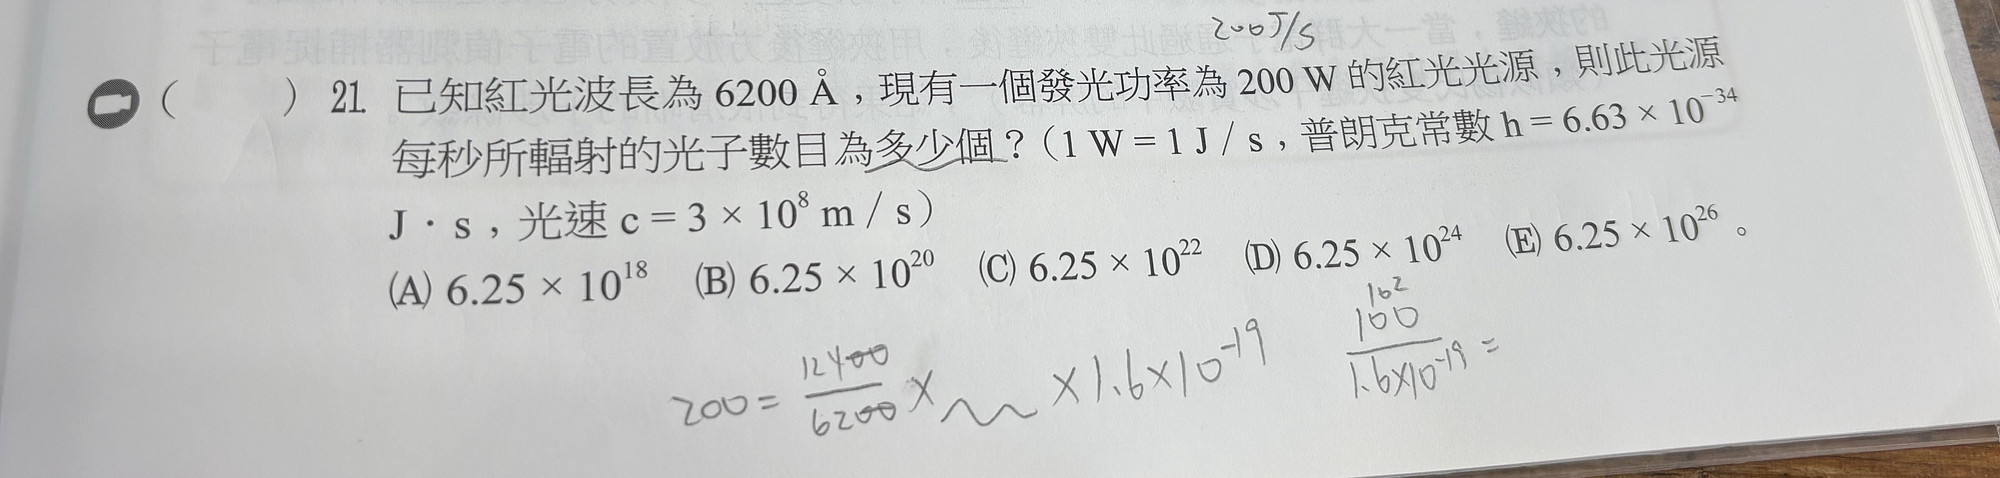 200J/s
( ) 21. 已知紅光波長為 6200 Å，現有一個發光功率為 200 W 的紅光光源，則此光源
每秒所輻射的光子數目為多少個？（1 W = 1 J / s，普朗克常數 h = 6.63 × 10⁻³⁴
J · s，光速 c = 3 × 10⁸ m / s）
(A) 6.25 × 10¹⁸ (B) 6.25 × 10²⁰ (C) 6.25 × 10²² (D) 6.25 × 10²⁴ (E) 6.25 × 10²⁶ 。
200 = 12400/6200 × ~~ × 1.6×10⁻¹⁹
10²
100/1.6×10⁻¹⁹ =